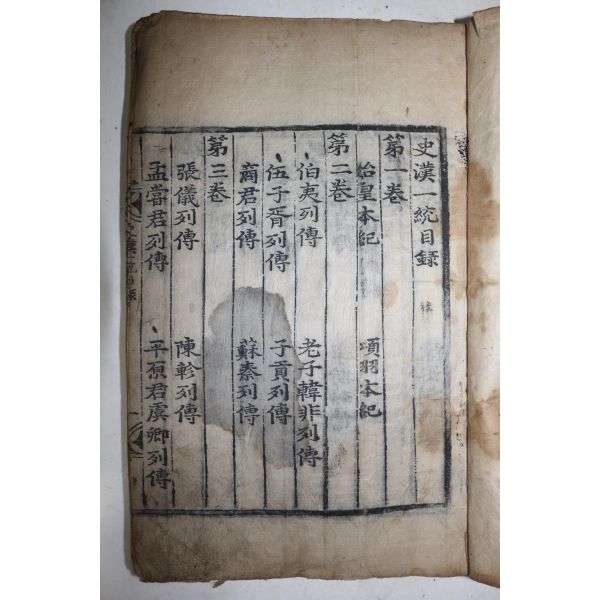 史漢一統目錄
第一卷
始皇本紀 項羽本紀
第二卷
伯夷列傳 老子韓非列傳
伍子胥列傳 子貢列傳
商君列傳 蘇秦列傳
第三卷
張儀列傳 陳軫列傳
孟嘗君列傳 平原君虞卿列傳